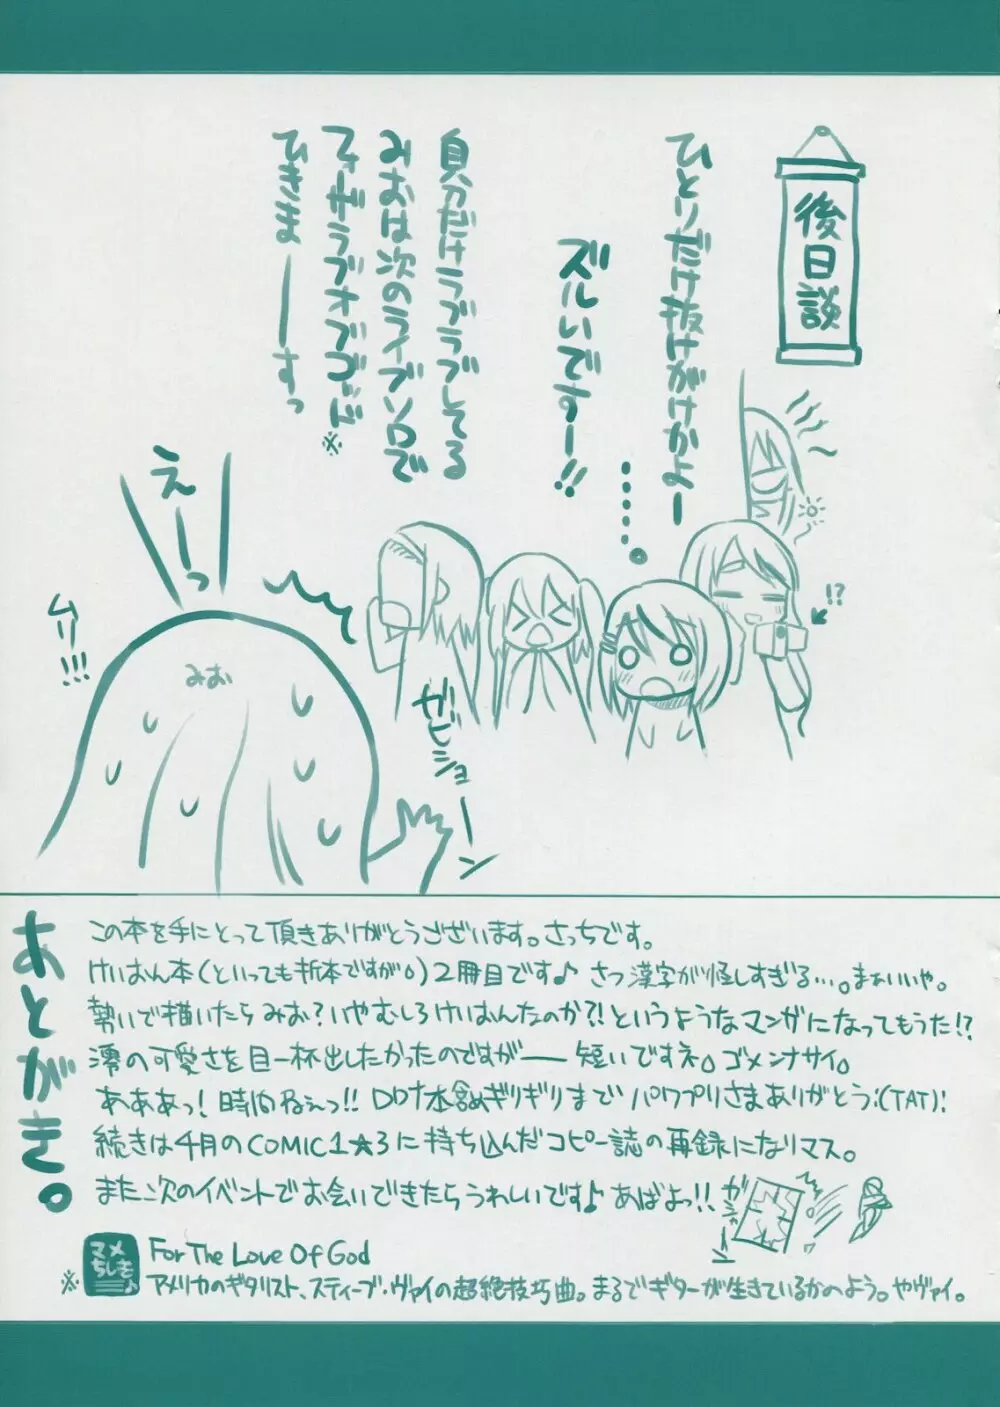 後日談
ひとりだけ抜けがけかよー
ズルいですー!!
•••••。
自分だけラブラブしてる
みおは次のライブソロで
フォーザラブオブゴッド※
ひきまーーーすっ
!?
えーっ
ムリ!!!
みお
ガビショーン
あとがき。
この本を手にとって頂きありがとうございます。さっちです。
けいおん本(といっても折本ですが。)2冊目です♪ さっ漢字が怪しすぎる…。まぁいいや。
勢いで描いたらみお?いやむしろけいおんなのか?!というようなマンガになってもうた!?
澪の可愛さを目一杯出したかったのですが── 短いですネ。ゴメンナサイ。
あああっ!時間ねぇっ!! 含めギリギリまでパワプリさまありがとう:(TAT):
続きは4月のCOMIC1★3に持ち込んだコピー誌の再録になりマス。
また次のイベントでお会いできたらうれしいです♪ あばよっ!!
ガシャーン
マメちしき♪
For The Love Of God
※アメリカのギタリスト、スティーブ・ヴァイの超絶技巧曲。まるでギターが生きているかのよう。ヤヴァイ。